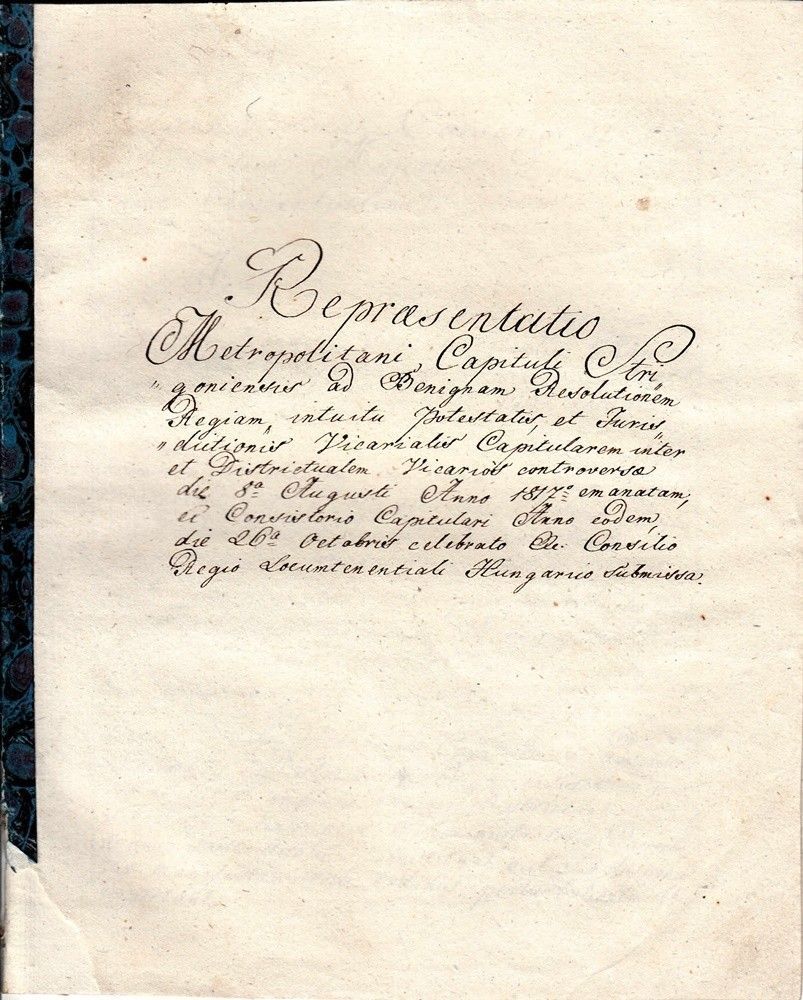 Repræsentatio
Metropolitani Capituli Stri
„goniensis ad Benignam Resolutionem
Regiam, intuitu Potestatis, et Juris„
„dictionis Vicarialis Capitularem inter
et Districtualem Vicarios controversæ
die 8ª Augusti Anno 1817º emanatam,
et Consistorio Capitulari Anno eodem,
die 26ª Octabris celebrato Ex. Consilio
Regio Locumtenentiali Hungarico submissa.